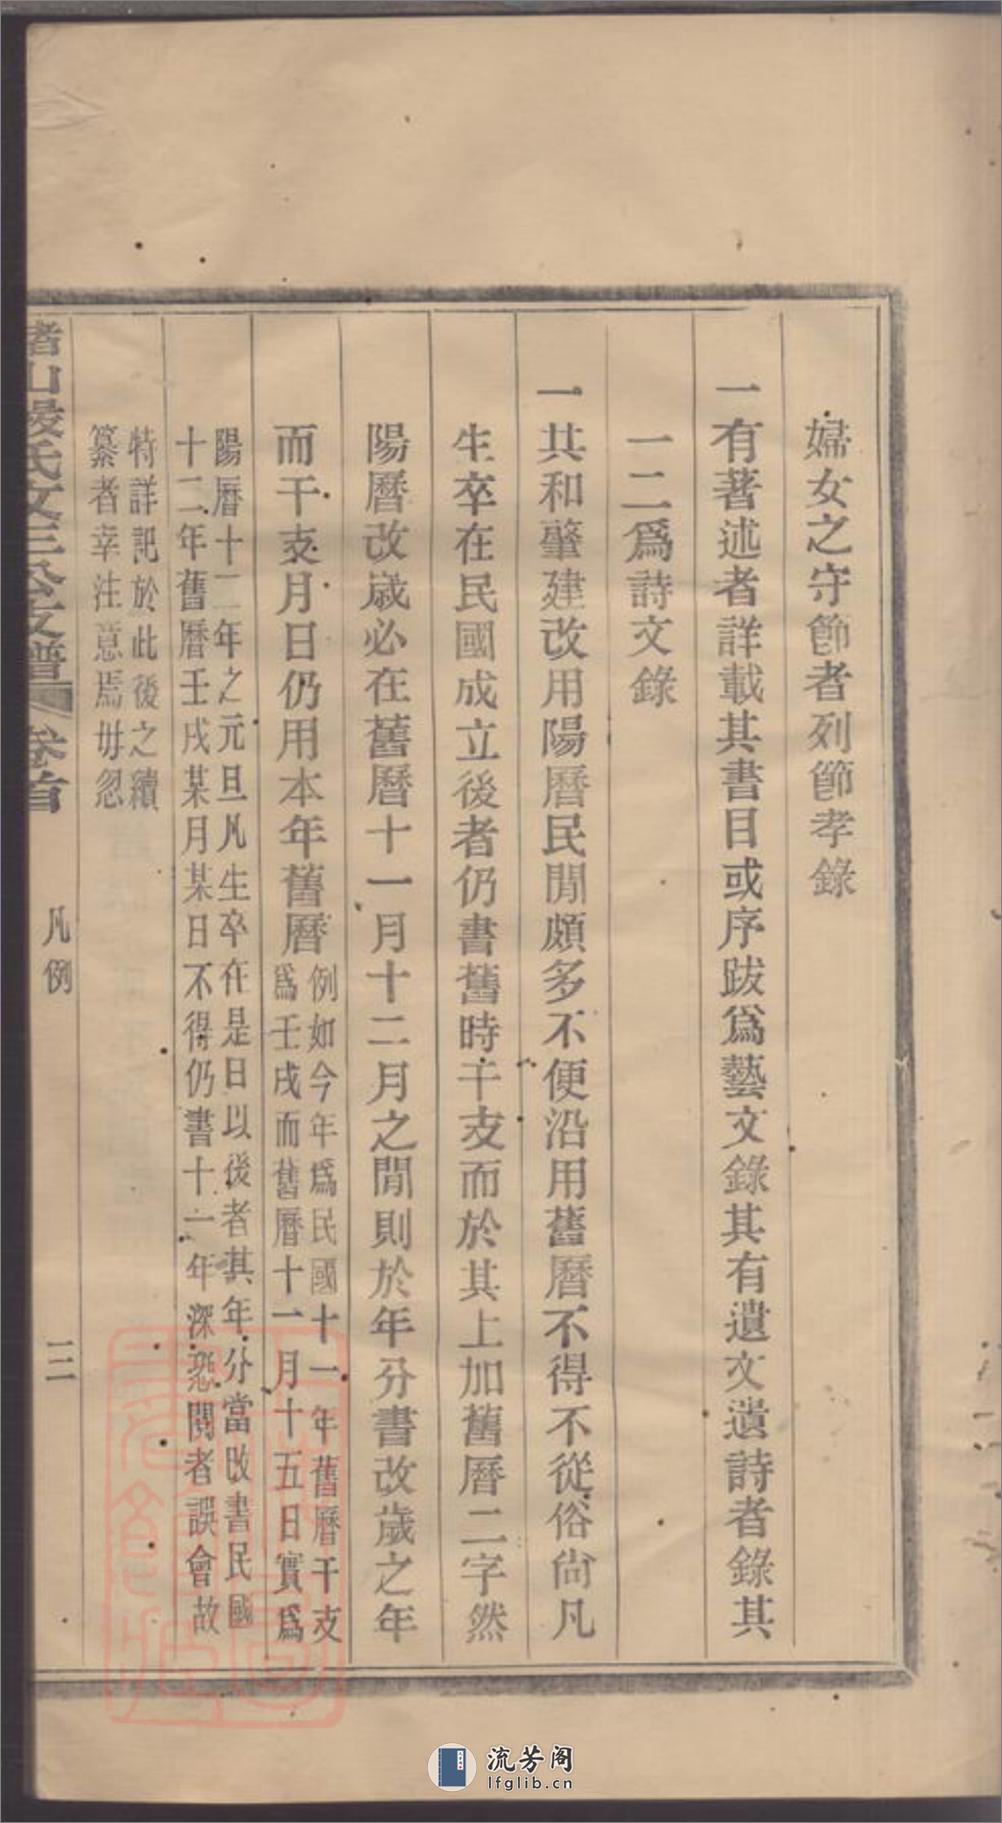 婦女之守節者列節孝錄
一有著述者詳載其書目或序跋爲藝文錄其有遺文遺詩者錄其
一二爲詩文錄
一共和肇建改用陽曆民閒頗多不便沿用舊曆不得不從俗尙凡
生卒在民國成立後者仍書舊時干支而於其上加舊曆二字然
陽曆改歲必在舊曆十一月十二月之閒則於年分書改歲之年
而干支月日仍用本年舊曆
例如今年爲民國十一年舊曆干支
爲壬戌而舊曆十一月十五日實爲
陽曆十二年之元旦凡生卒在是日以後者其年分當改書民國
十二年舊曆壬戌某月某日不得仍書十一年深恐閱者誤會故
特詳記於此後之續
纂者幸注意焉毋忽
山殷氏文三公支譜 卷首 凡例 三
流芳阁
lfglib.cn